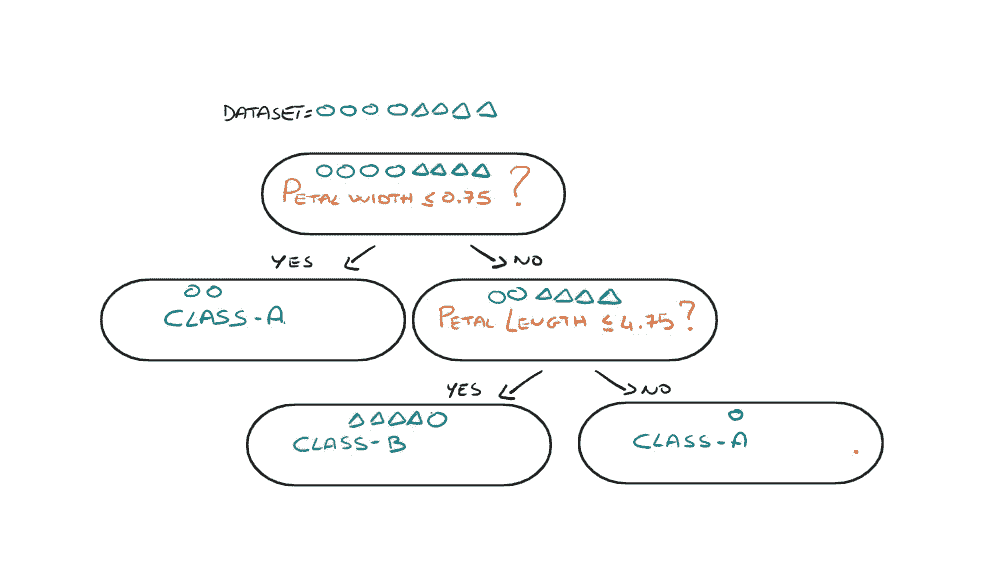 DATASET=
PETAL WIDTH ≤ 0.75 ?
YES
NO
CLASS-A
PETAL LENGTH ≤ 4.75?
YES
NO
CLASS-B
CLASS-A